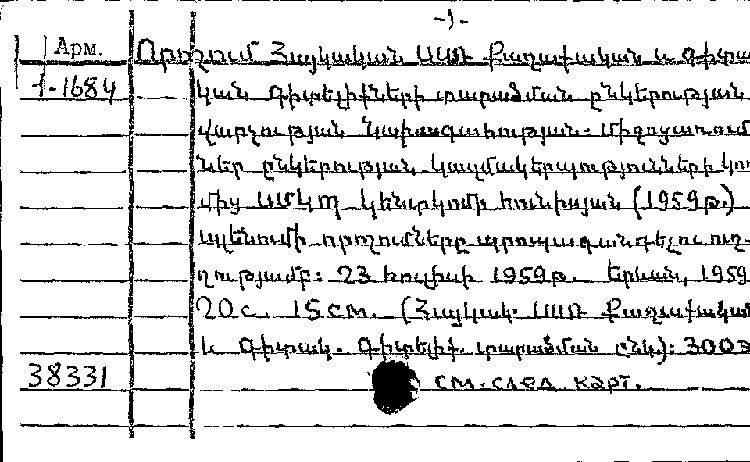 -1-
Арм.
1-1684
Որոշում Հայկական ՍՍՌ Քաղաքական և Գիտա
կան Գիտելիքների տարածման ընկերության
վարչության նախագահության. Միջոցառում
ներ ընկերության կազմակերպությունների կող
մից ՍՄԿՊ կենտկոմի հունիսյան (1959թ.)
պլենումի որոշումները պրոպագանդելու ուղ-
ղությամբ: 23 հուլիսի 1959թ. Երևան, 1959
20с. 15см. (Հայկակ. ՍՍՌ Քաղաքական
և Գիտակ. Գիտելիք. տարածման ընկ): 300
38331
см. след карт.